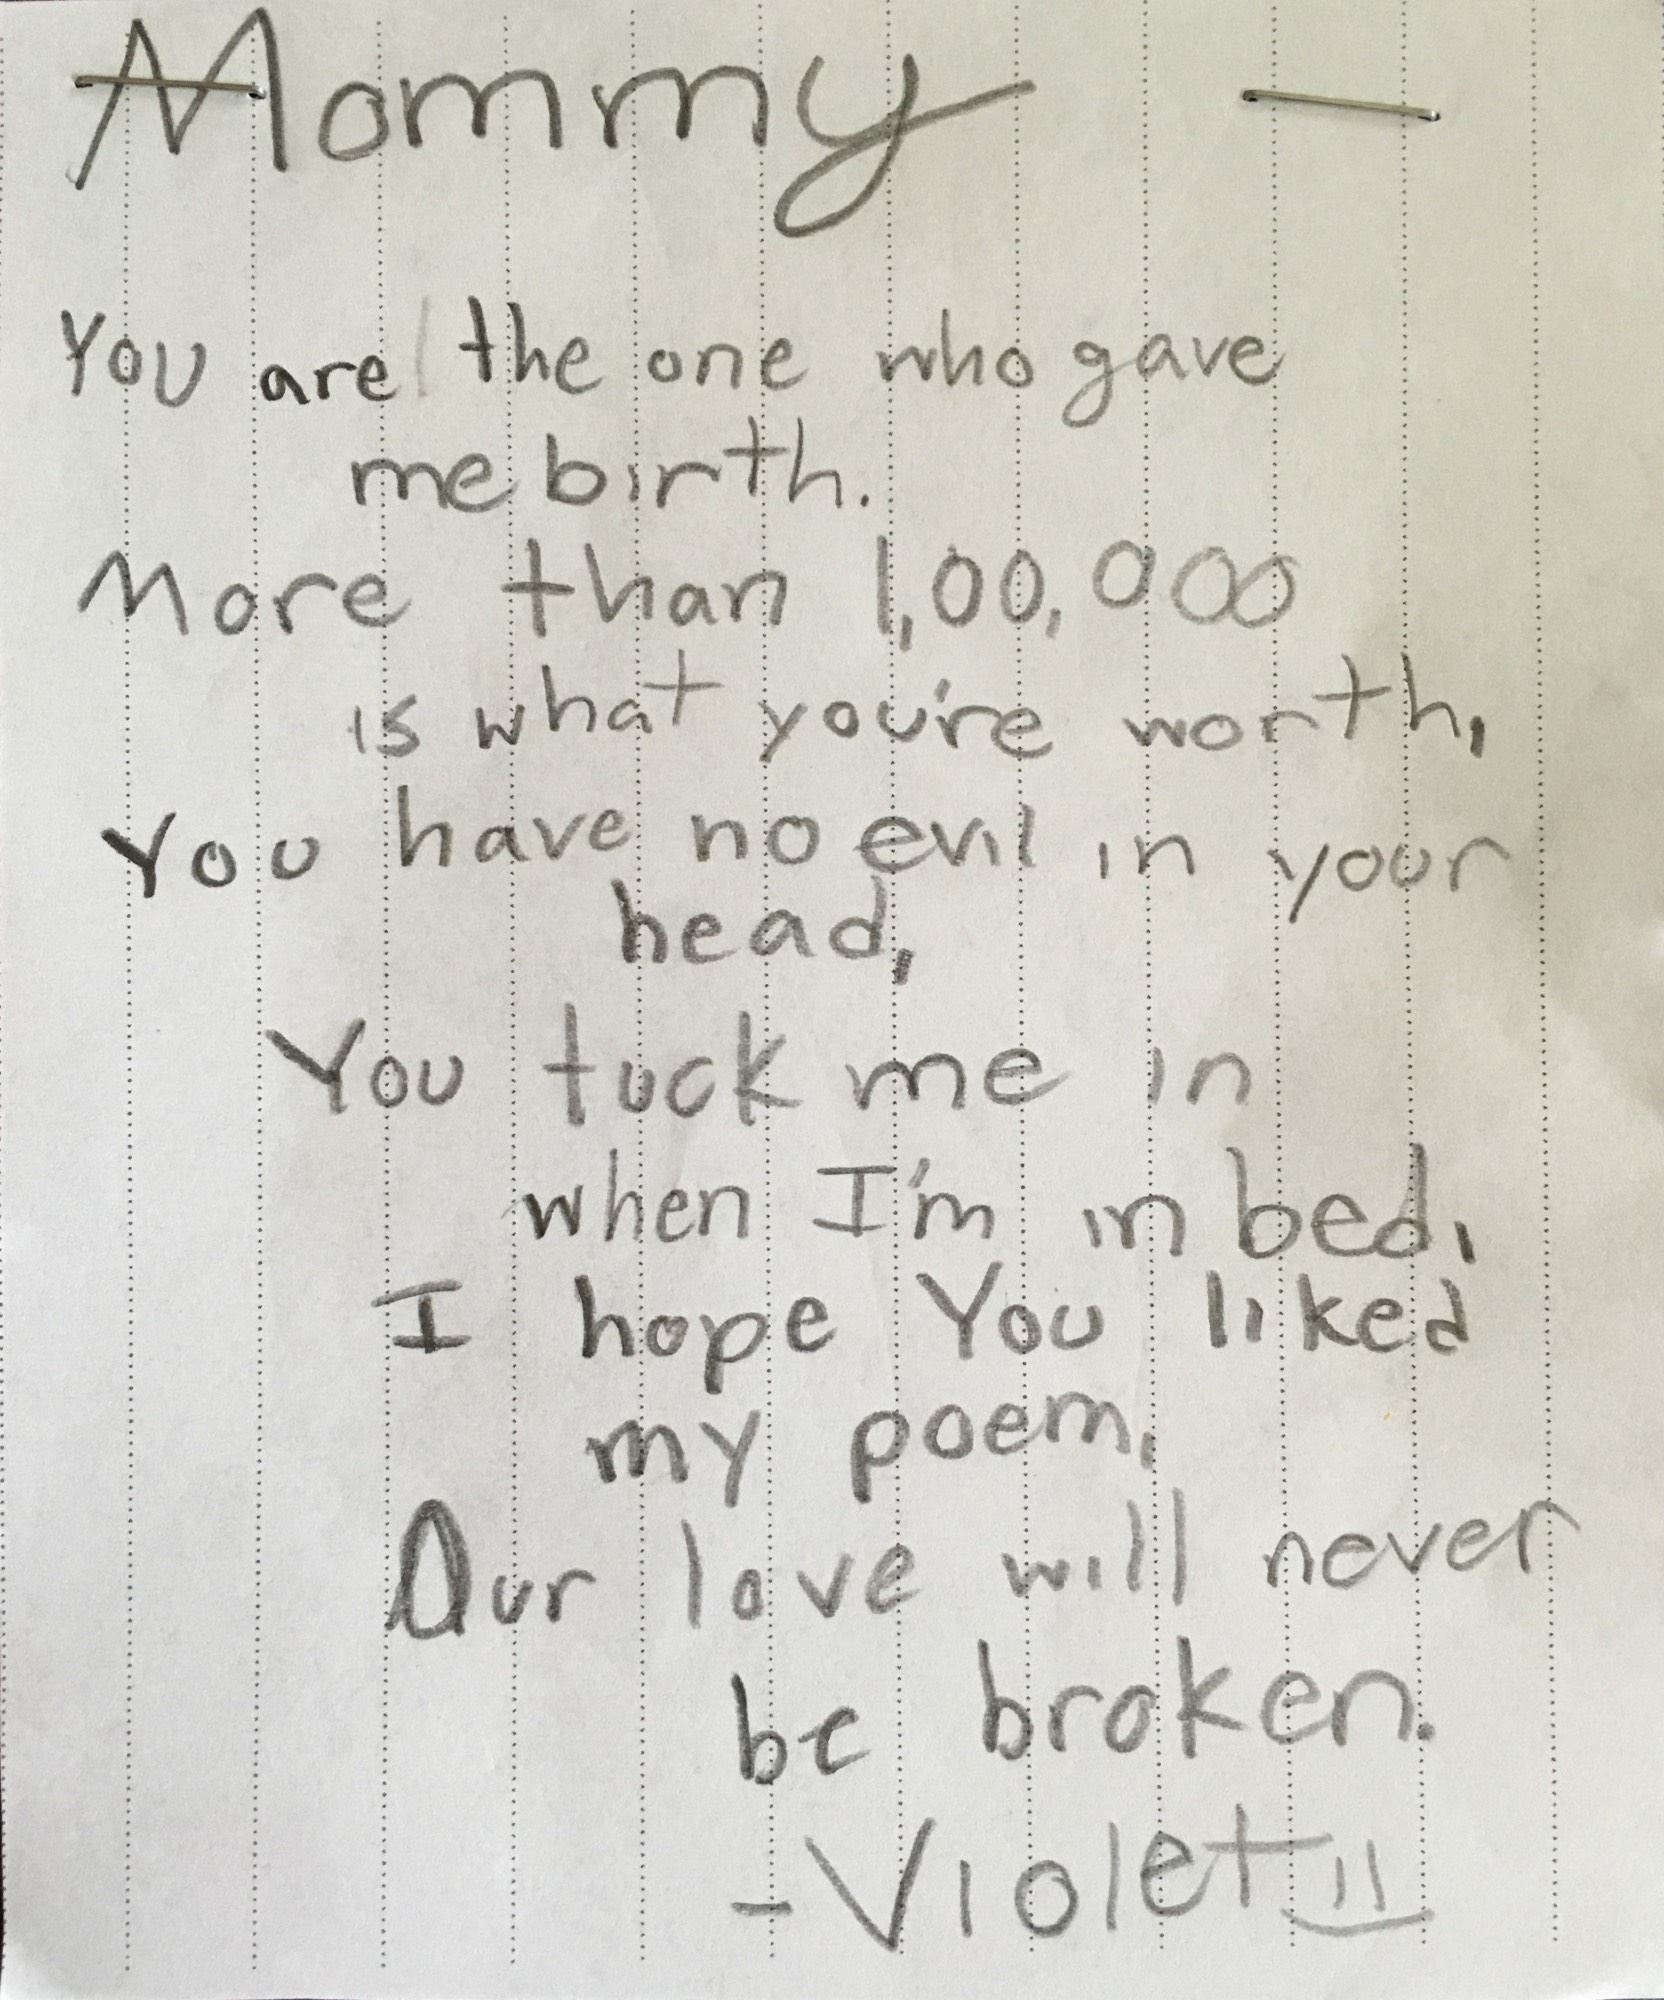 Mommy
You are the one who gave
me birth.
More than 1,00,000
is what you're worth,
You have no evil in your
head,
You tuck me in
when I'm in bed,
I hope You liked
my poem,
Our love will never
be broken.
-Violet